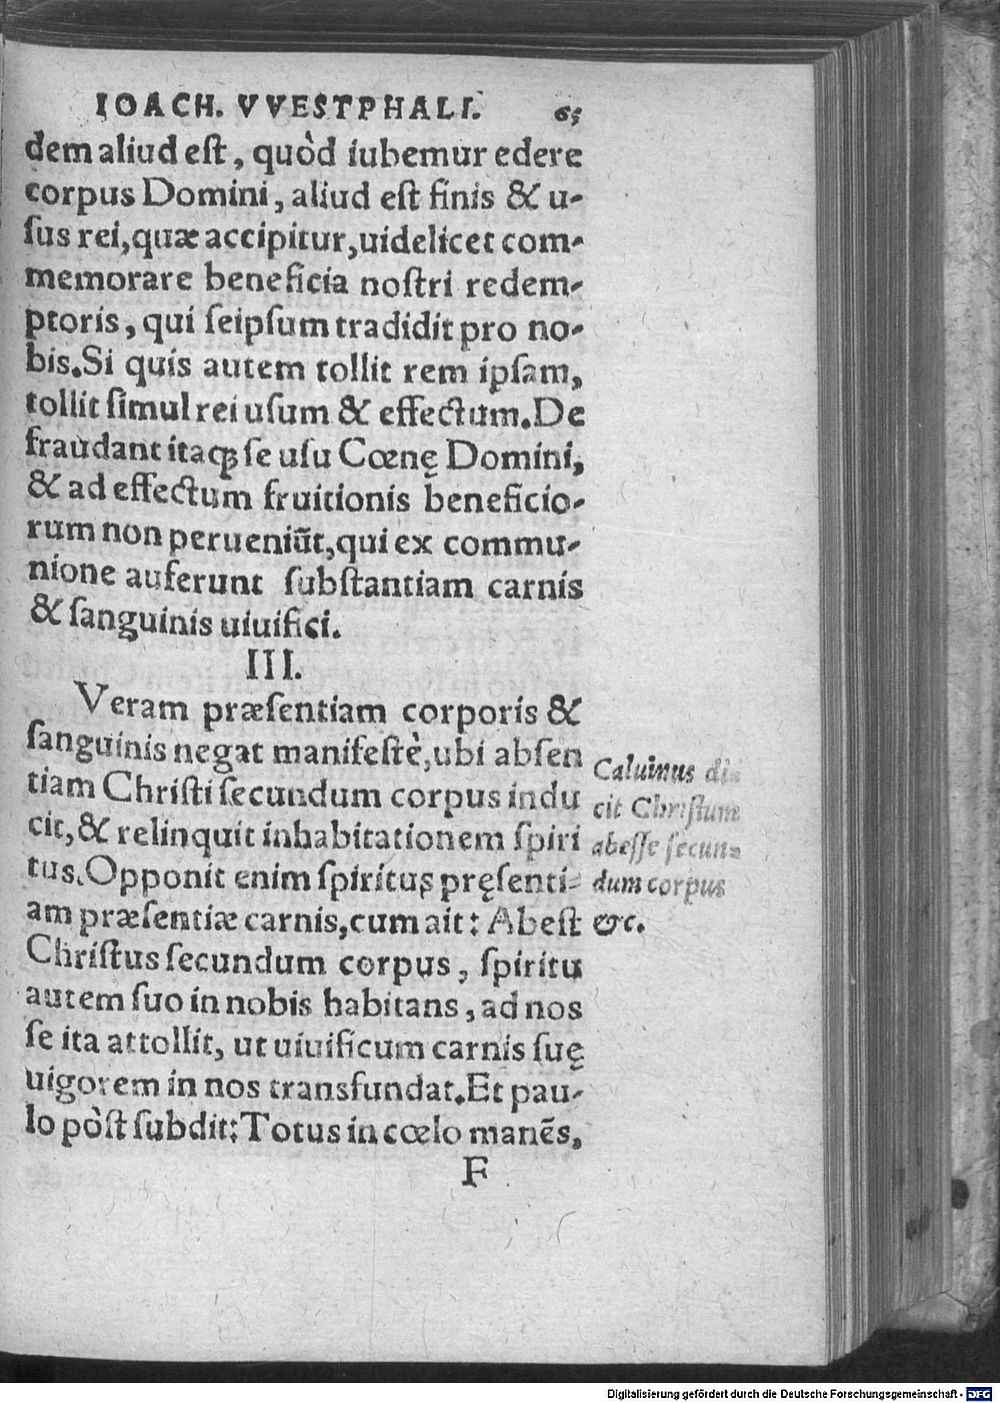 IOACH. VVESTPHALI. 65
dem aliud eſt, quòd iubemur edere
corpus Domini, aliud eſt finis & u-
ſus rei, quæ accipitur, uidelicet com-
memorare beneficia noſtri redem-
ptoris, qui ſeipſum tradidit pro no-
bis. Si quis autem tollit rem ipſam,
tollit ſimul rei uſum & effectum. De
fraudant itaqꝫ ſe uſu Cœnę Domini,
& ad effectum fruitionis beneficio-
rum non perueniũt, qui ex commu-
nione auferunt ſubſtantiam carnis
& ſanguinis uiuifici.
III.
Veram præſentiam corporis &
ſanguinis negat manifeſtè, ubi abſen
tiam Chriſti ſecundum corpus indu
cit, & relinquit inhabitationem ſpiri
tus. Opponit enim ſpiritus pręſenti-
am præſentiæ carnis, cum ait: Abeſt
Chriſtus ſecundum corpus, ſpiritu
autem ſuo in nobis habitans, ad nos
ſe ita attollit, ut uiuificum carnis ſuę
uigorem in nos transfundat. Et pau-
lo pòſt ſubdit: Totus in cœlo manẽs,
F
Caluinus di
cit Chriſtum
abeſſe ſecun-
dum corpus
&c.
Digitalisierung gefördert durch die Deutsche Forschungsgemeinschaft - DFG